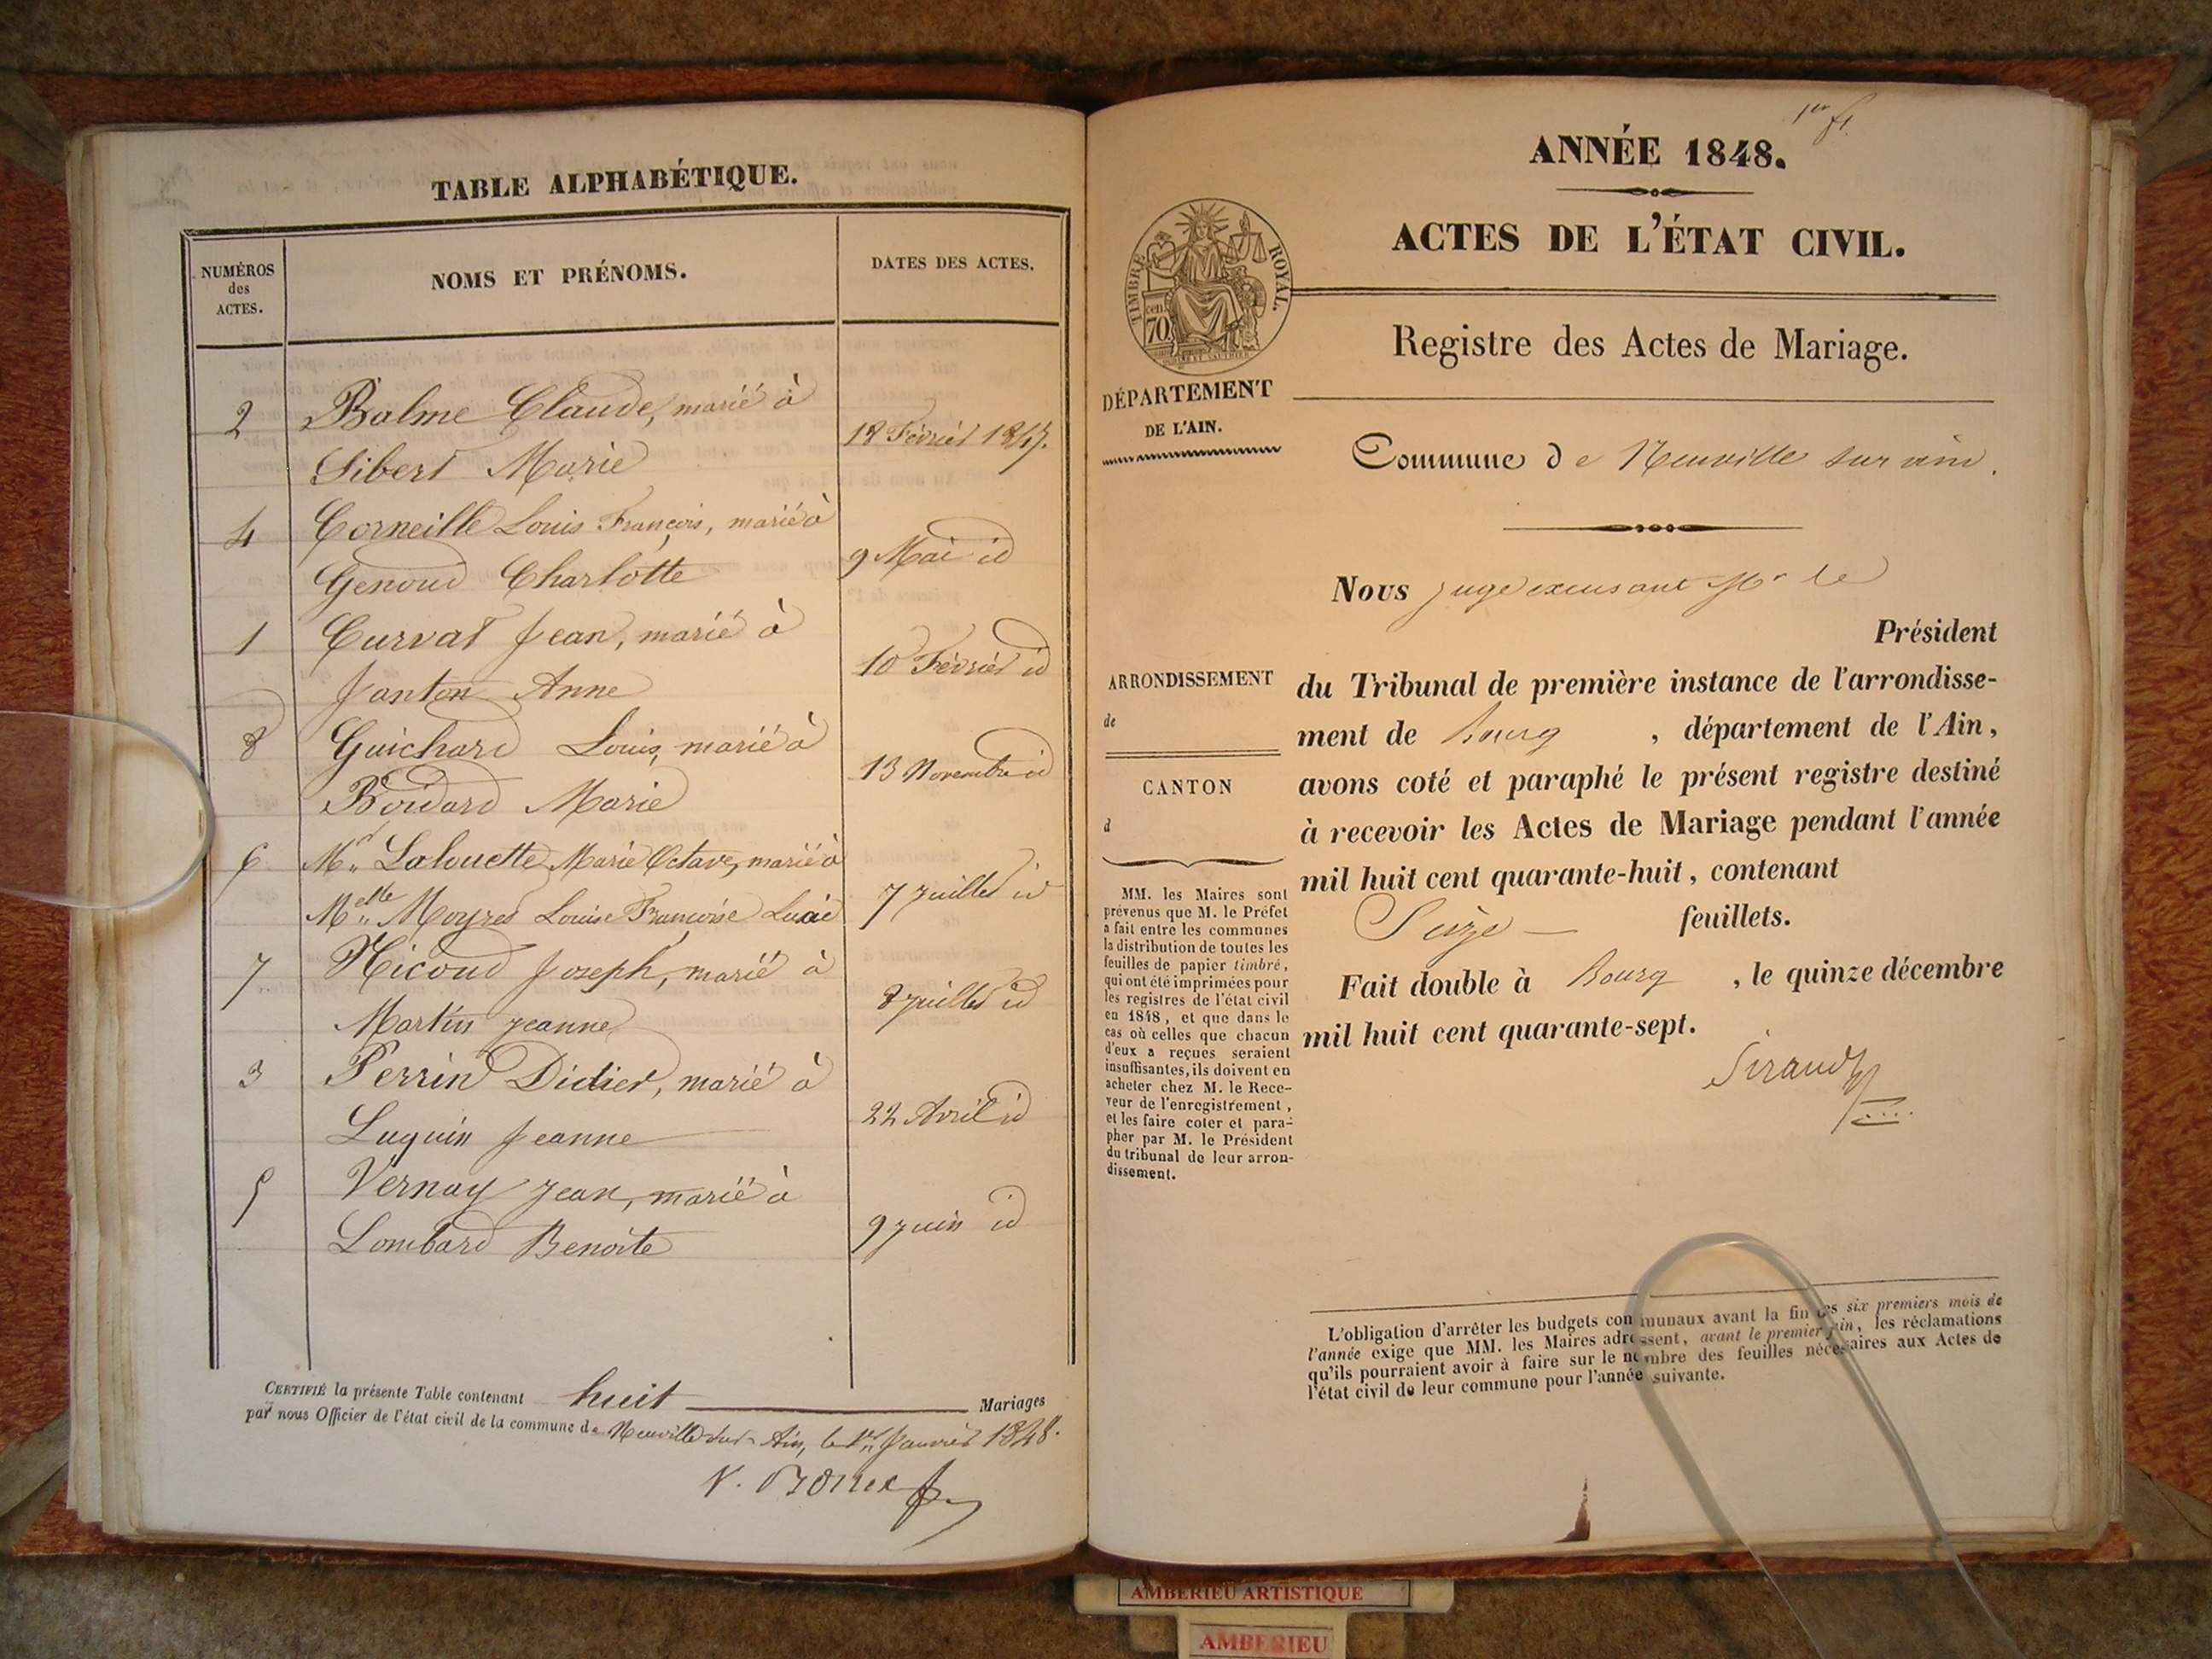 TABLE ALPHABÉTIQUE.
NUMÉROS
des
ACTES.
NOMS ET PRÉNOMS.
DATES DES ACTES.
2 Balme Claude, marié à
Sibert Marie
18 Février 1847.
4 Corneille Louis François, marié à
Genoud Charlotte
9 Mai id
1 Curvat Jean, marié à
Janton Anne
10 Février id
8 Guichard Louis, marié à
Boidard Marie
13 Novembre id
6 Mr. Lalouette Marie Octave, marié à
Melle Moyret Louise Françoise Lucie
7 Juillet id
7 Nicoud Joseph, marié à
Martin Jeanne
8 Juillet id
3 Perrin Didier, marié à
Luquin Jeanne
22 Avril id
5 Vernay Jean, marié à
Lombard Benoite
9 Juin id
CERTIFIÉ la présente Table contenant huit Mariages
par nous Officier de l'état civil de la commune de Neuville sur Ain, le 1er Janvier 1848.
1er ft
ANNÉE 1848.
ACTES DE L'ÉTAT CIVIL.
TIMBRE ROYAL.
cen.
70
Registre des Actes de Mariage.
DÉPARTEMENT
DE L'AIN.
Commune de Neuville sur ain.
Nous juge excusant Mr le
Président
ARRONDISSEMENT
de
CANTON
d
du Tribunal de première instance de l'arrondisse-
ment de Bourg, département de l'Ain,
avons coté et paraphé le présent registre destiné
à recevoir les Actes de Mariage pendant l'année
mil huit cent quarante-huit, contenant
Seize feuillets.
Fait double à Bourg, le quinze décembre
mil huit cent quarante-sept.
Sirand
MM. les Maires sont
prévenus que M. le Préfet
a fait entre les communes
la distribution de toutes les
feuilles de papier timbré,
qui ont été imprimées pour
les registres de l'état civil
en 1848, et que dans le
cas où celles que chacun
d'eux a reçues seraient
insuffisantes, ils doivent en
acheter chez M. le Rece-
veur de l'enregistrement,
et les faire coter et para-
pher par M. le Président
du tribunal de leur arron-
dissement.
L'obligation d'arrêter les budgets communaux avant la fin des six premiers mois de
l'année exige que MM. les Maires adressent, avant le premier juin, les réclamations
qu'ils pourraient avoir à faire sur le nombre des feuilles nécessaires aux Actes de
l'état civil de leur commune pour l'année suivante.
AMBERIEU ARTISTIQUE
AMBERIEU